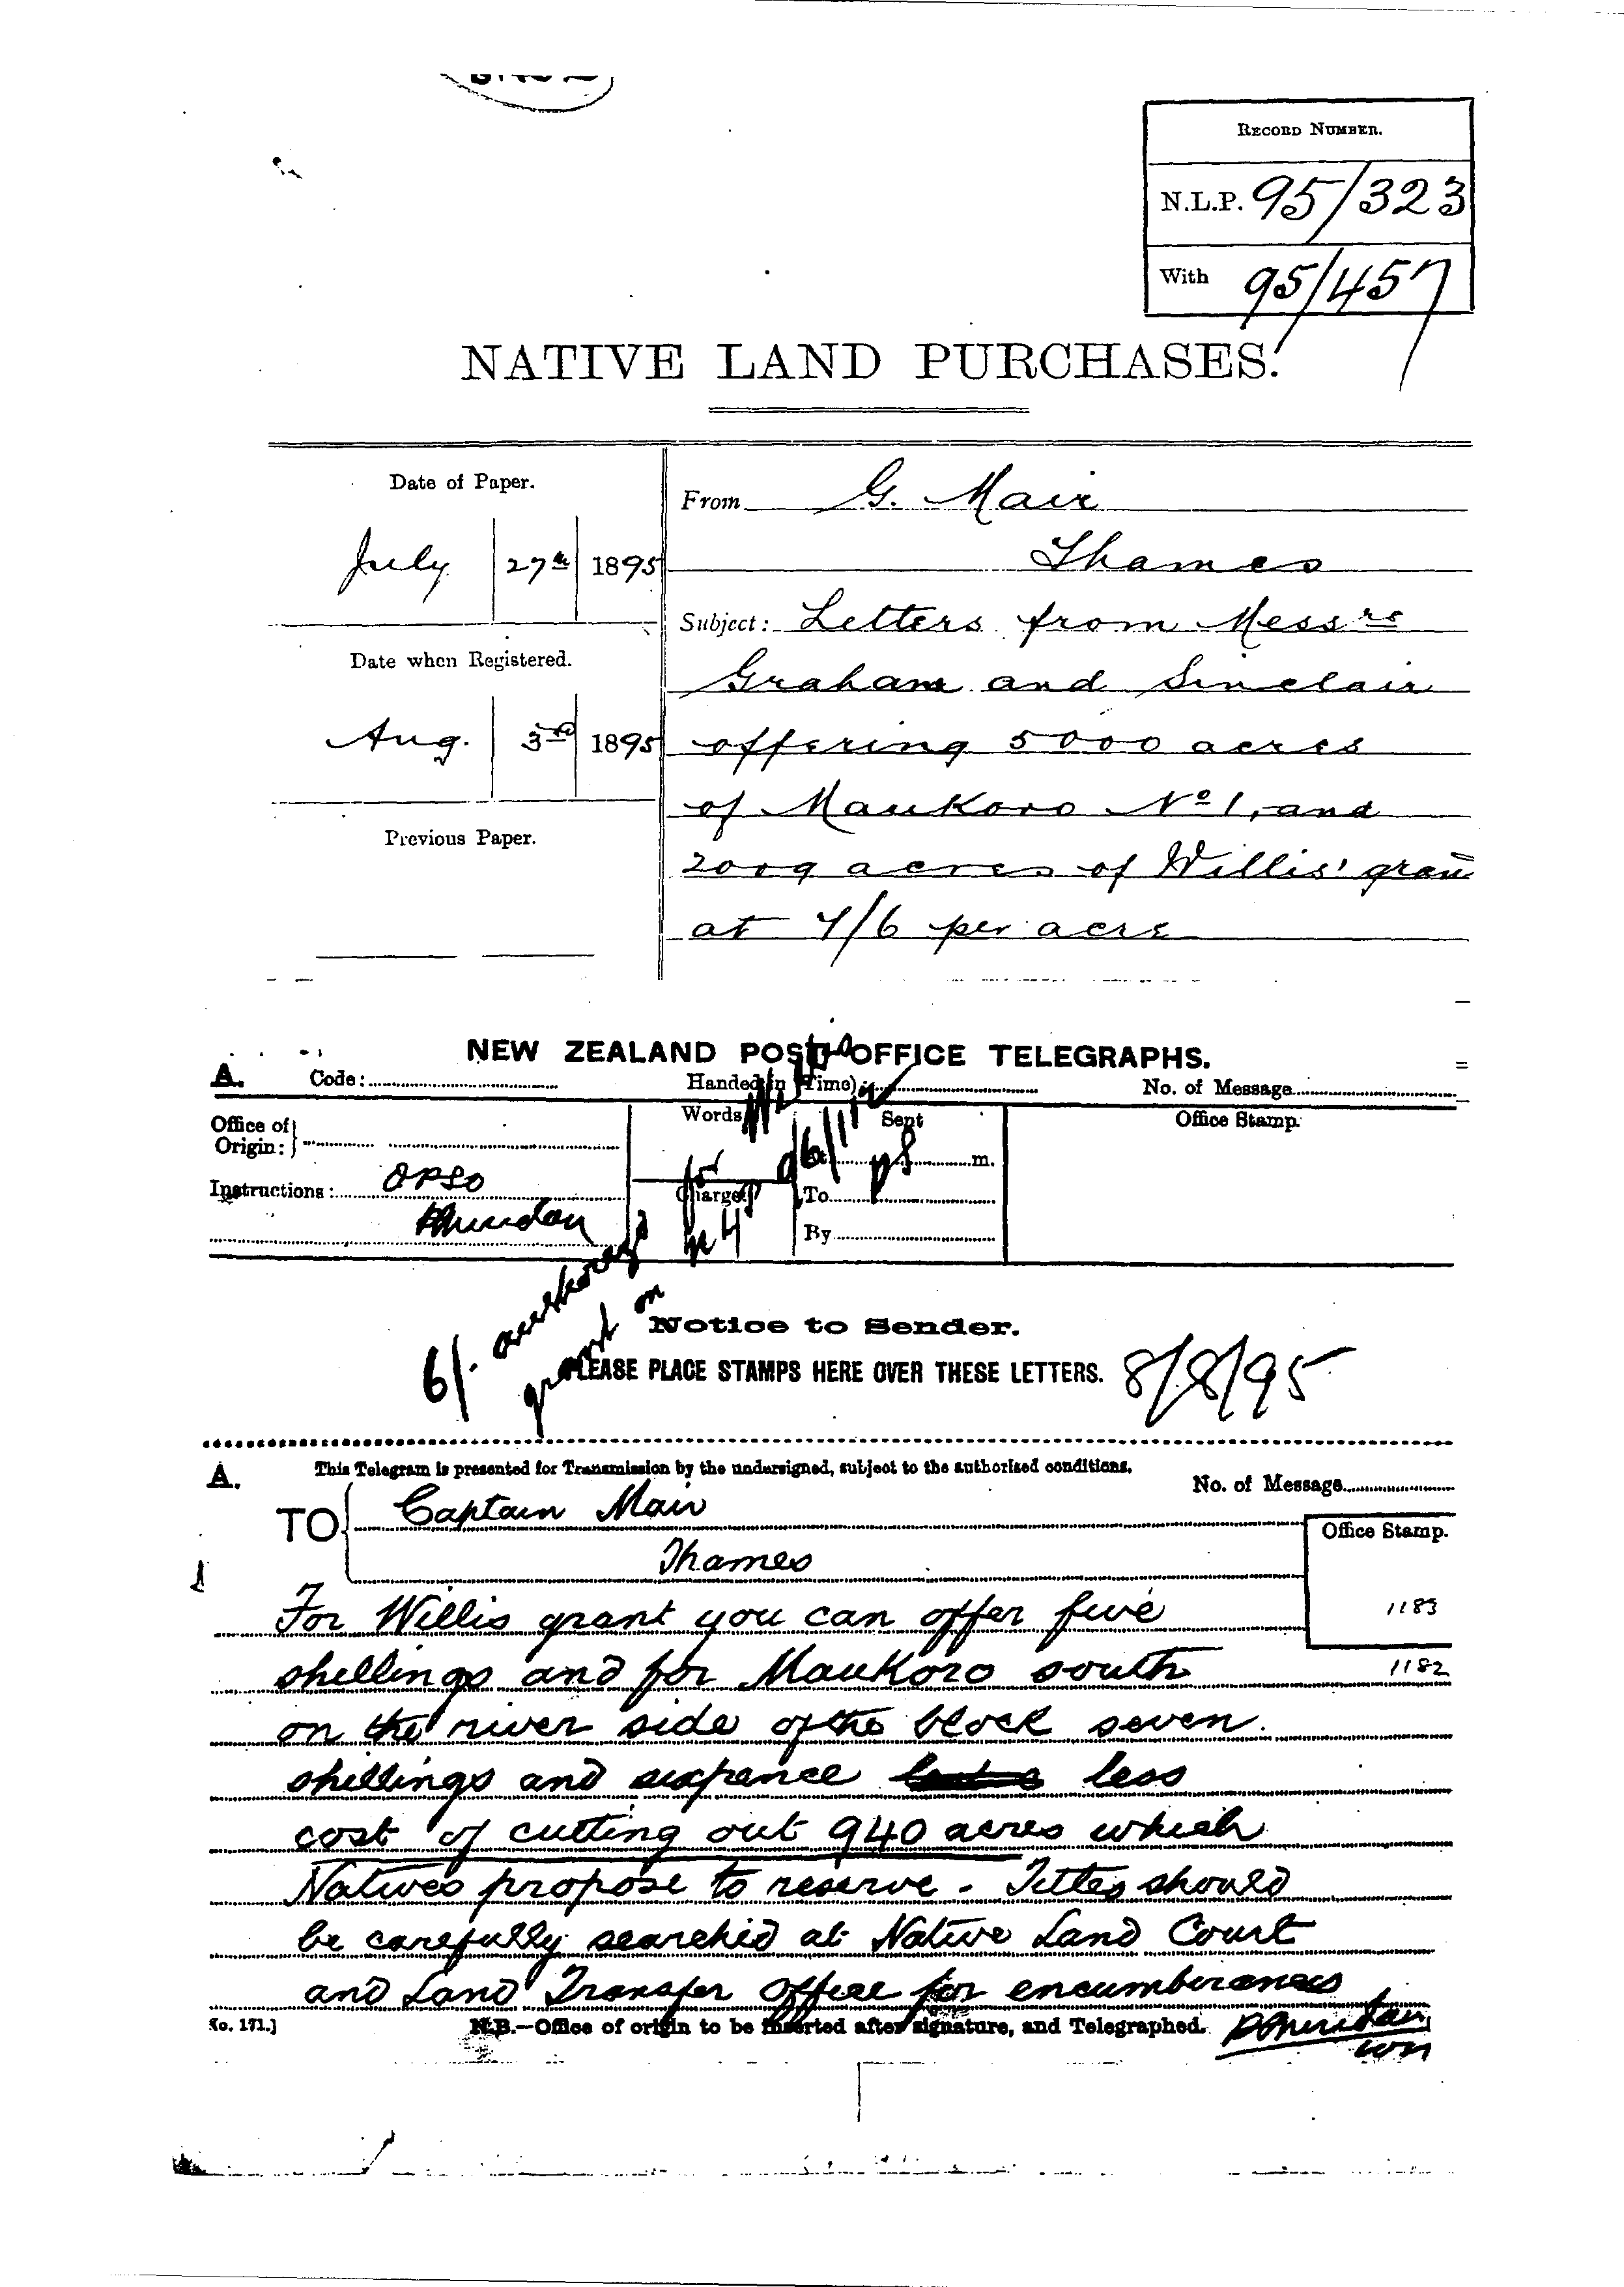 RECORD NUMBER.
N.L.P. 95/323
With 95/457
NATIVE LAND PURCHASES.
Date of Paper.
July 27th 1895
Date when Registered.
Aug. 3rd 1895
Previous Paper.
From G. Mair
Thames
Subject: Letters from Messrs
Graham and Sinclair
offering 5000 acres
of Maukoro No 1, and
2009 acres of Willis' gran
at 7/6 per acre
NEW ZEALAND POST OFFICE TELEGRAPHS.
A. Code: Handed in (Time) No. of Message
Office of Origin:
Words
Sent
Office Stamp.
m.
Instructions: OPSO
Charge
To
By
6/- authorized
grant on
Notice to Sender.
PLEASE PLACE STAMPS HERE OVER THESE LETTERS. 8/8/95
A. This Telegram is presented for Transmission by the undersigned, subject to the authorised conditions.
No. of Message
TO Captain Mair
Office Stamp.
Thames
For Willis grant you can offer five
1183
shillings and for Maukoro south
1182
on the river side of the block seven
shillings and sixpence less
cost of cutting out 940 acres which
Natives propose to reserve. Titles should
be carefully searched at Native Land Court
and Land Transfer Office for encumberances
No. 171.] N.B.—Office of origin to be inserted after signature, and Telegraphed. P Sheridan